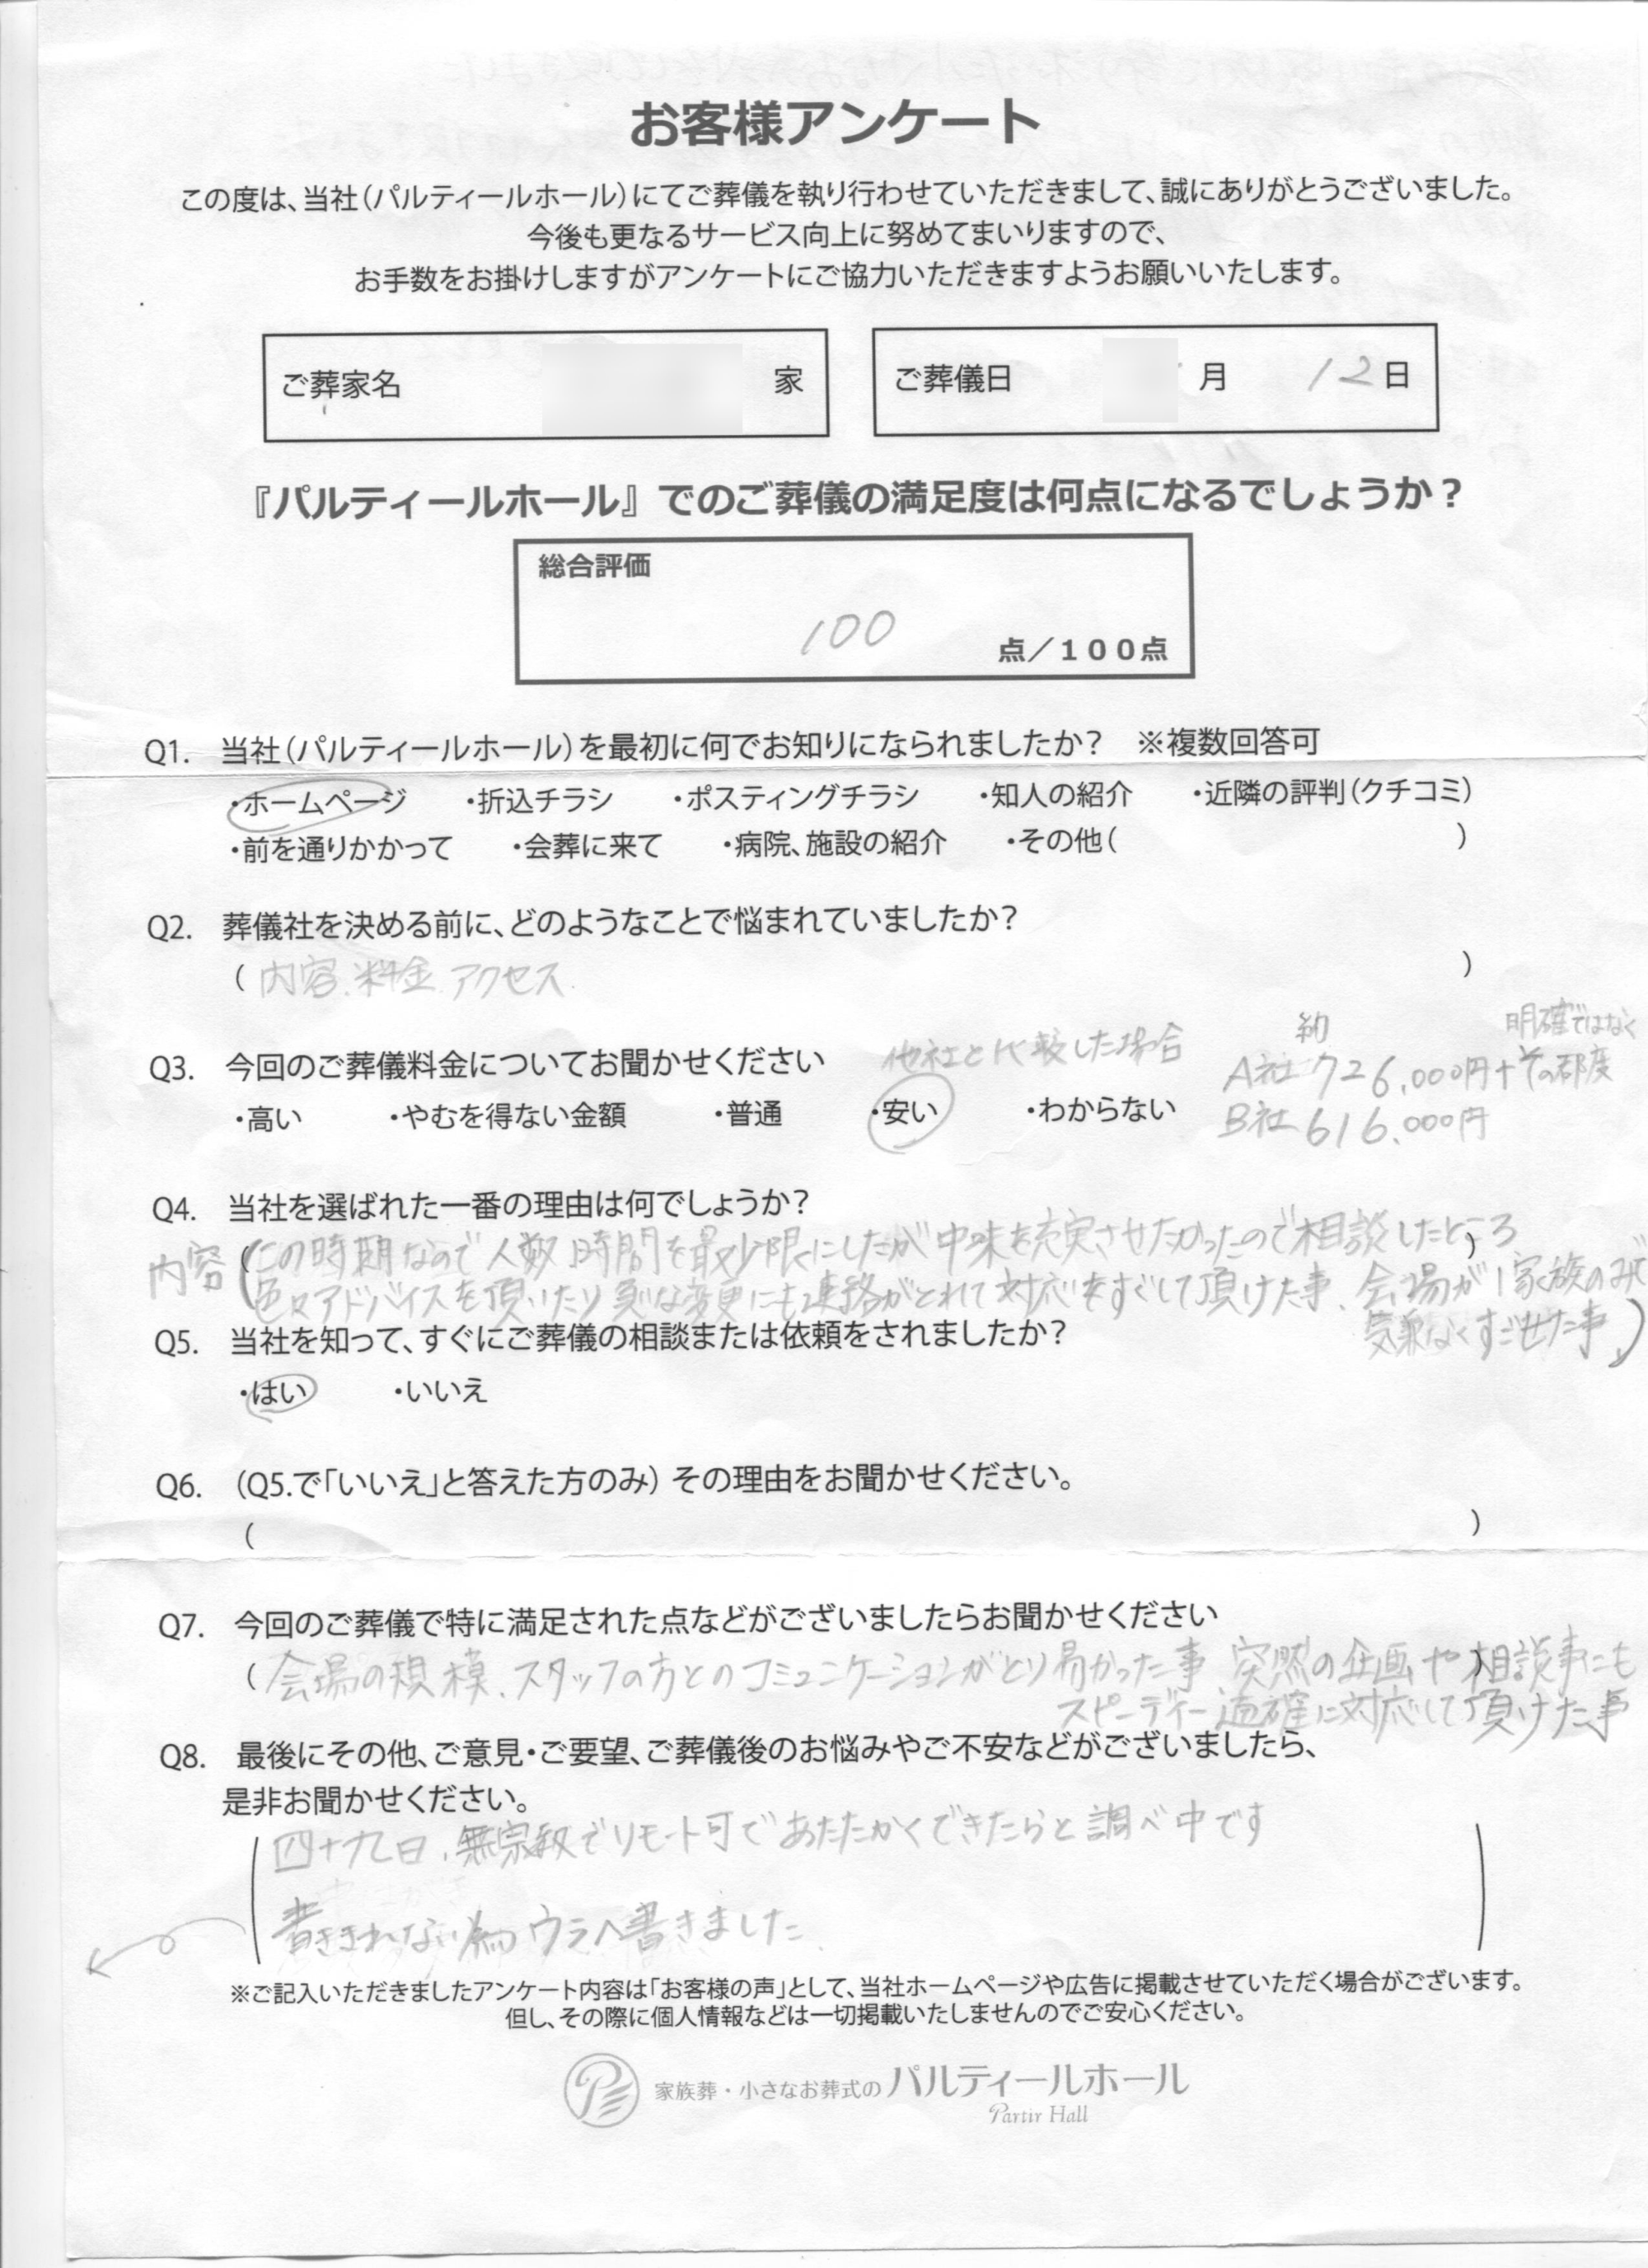 お客様アンケート
この度は、当社(パルティールホール)にてご葬儀を執り行わせていただきまして、誠にありがとうございました。
今後も更なるサービス向上に努めてまいりますので、
お手数をお掛けしますがアンケートにご協力いただきますようお願いいたします。
ご葬家名 家
ご葬儀日 月 12日
『パルティールホール』でのご葬儀の満足度は何点になるでしょうか?
総合評価
100 点/100点
Q1. 当社(パルティールホール)を最初に何でお知りになられましたか? ※複数回答可
・ホームページ ・折込チラシ ・ポスティングチラシ ・知人の紹介 ・近隣の評判(クチコミ)
・前を通りかかって ・会葬に来て ・病院、施設の紹介 ・その他( )
Q2. 葬儀社を決める前に、どのようなことで悩まれていましたか?
(内容、料金、アクセス )
Q3. 今回のご葬儀料金についてお聞かせください 他社と比較した場合
・高い ・やむを得ない金額 ・普通 ・安い ・わからない
約 明確ではなく
A社 726,000円+その都度
B社 616,000円
Q4. 当社を選ばれた一番の理由は何でしょうか?
内容(この時期なので人数、時間を最少限にしたが中味を充実させたかったので相談したところ
色々アドバイスを頂いたり急な変更にも連絡がとれて対応をすぐして頂けた事、会場が1家族のみで
気兼なくすごせた事)
Q5. 当社を知って、すぐにご葬儀の相談または依頼をされましたか?
・はい ・いいえ
Q6. (Q5.で「いいえ」と答えた方のみ)その理由をお聞かせください。
( )
Q7. 今回のご葬儀で特に満足された点などがございましたらお聞かせください
(会場の規模、スタッフの方とのコミュニケーションがとり易かった事 突然の企画や相談事にも
スピーディー 適確に対応して頂けた事
Q8. 最後にその他、ご意見・ご要望、ご葬儀後のお悩みやご不安などがございましたら、
是非お聞かせください。
四十九日、無宗教でリモート可であたたかくできたらと調べ中です
書ききれない為ウラへ書きました
※ご記入いただきましたアンケート内容は「お客様の声」として、当社ホームページや広告に掲載させていただく場合がございます。
但し、その際に個人情報などは一切掲載いたしませんのでご安心ください。
家族葬・小さなお葬式の パルティールホール
Partir Hall